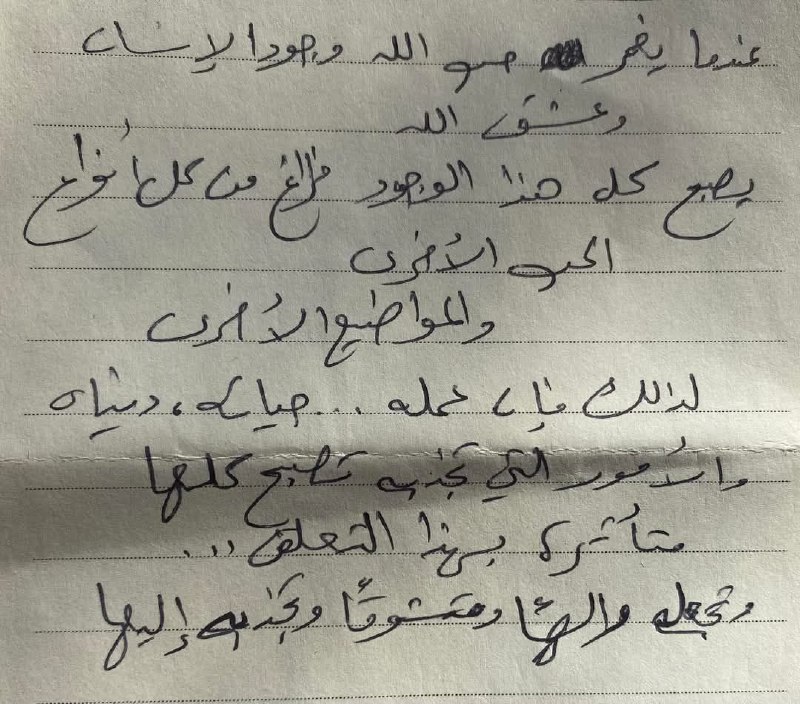 عندما يغمر حب الله وجود الإنسان
وعشق الله
يصبح كل هذا الوجود فارغ من كل أنواع
الحب الأخرى
والمواضيع الأخرى
لذلك فإن عمله ... حياته، دنياه
والأمور التي تجذبه تصبح كلها
متأثرة بهذا التعلق ...
وتجعله والهًا ومتشوقًا وتجذبه إليها